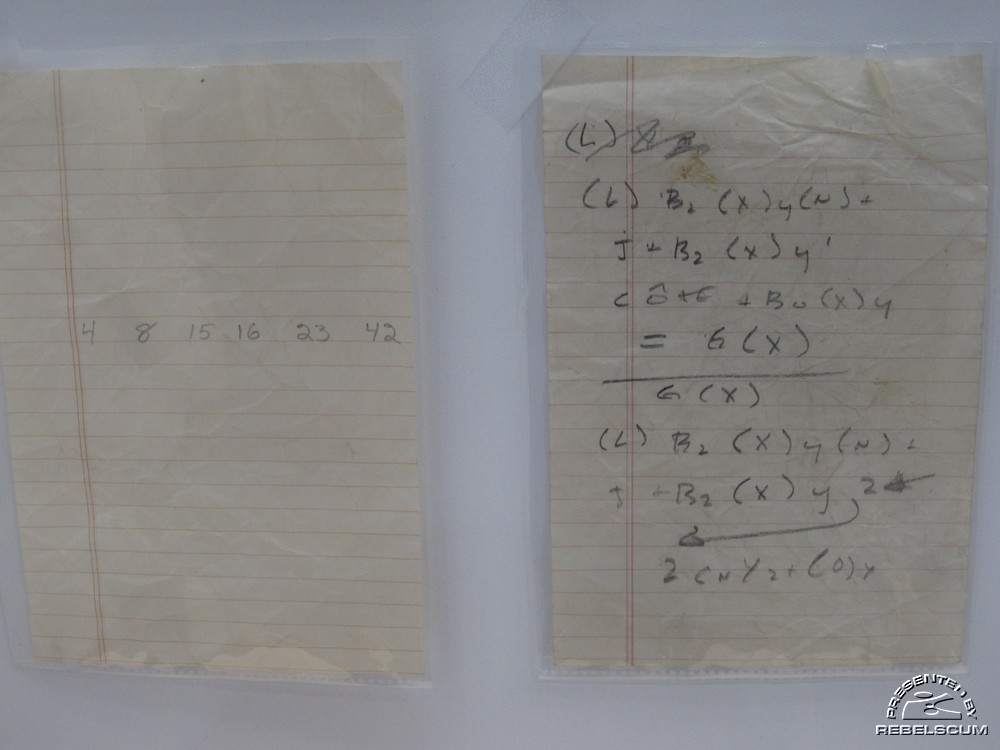 4 8 15 16 23 42
(L)
(L) B₂ (X) y (N) +
J + B₂ (X) y '
+ B₀ (X) y
= G (X)
G (X)
(L) B₂ (X) y (N)
B₂ (X) y 2
2
PRESENTED BY
REBELSCUM